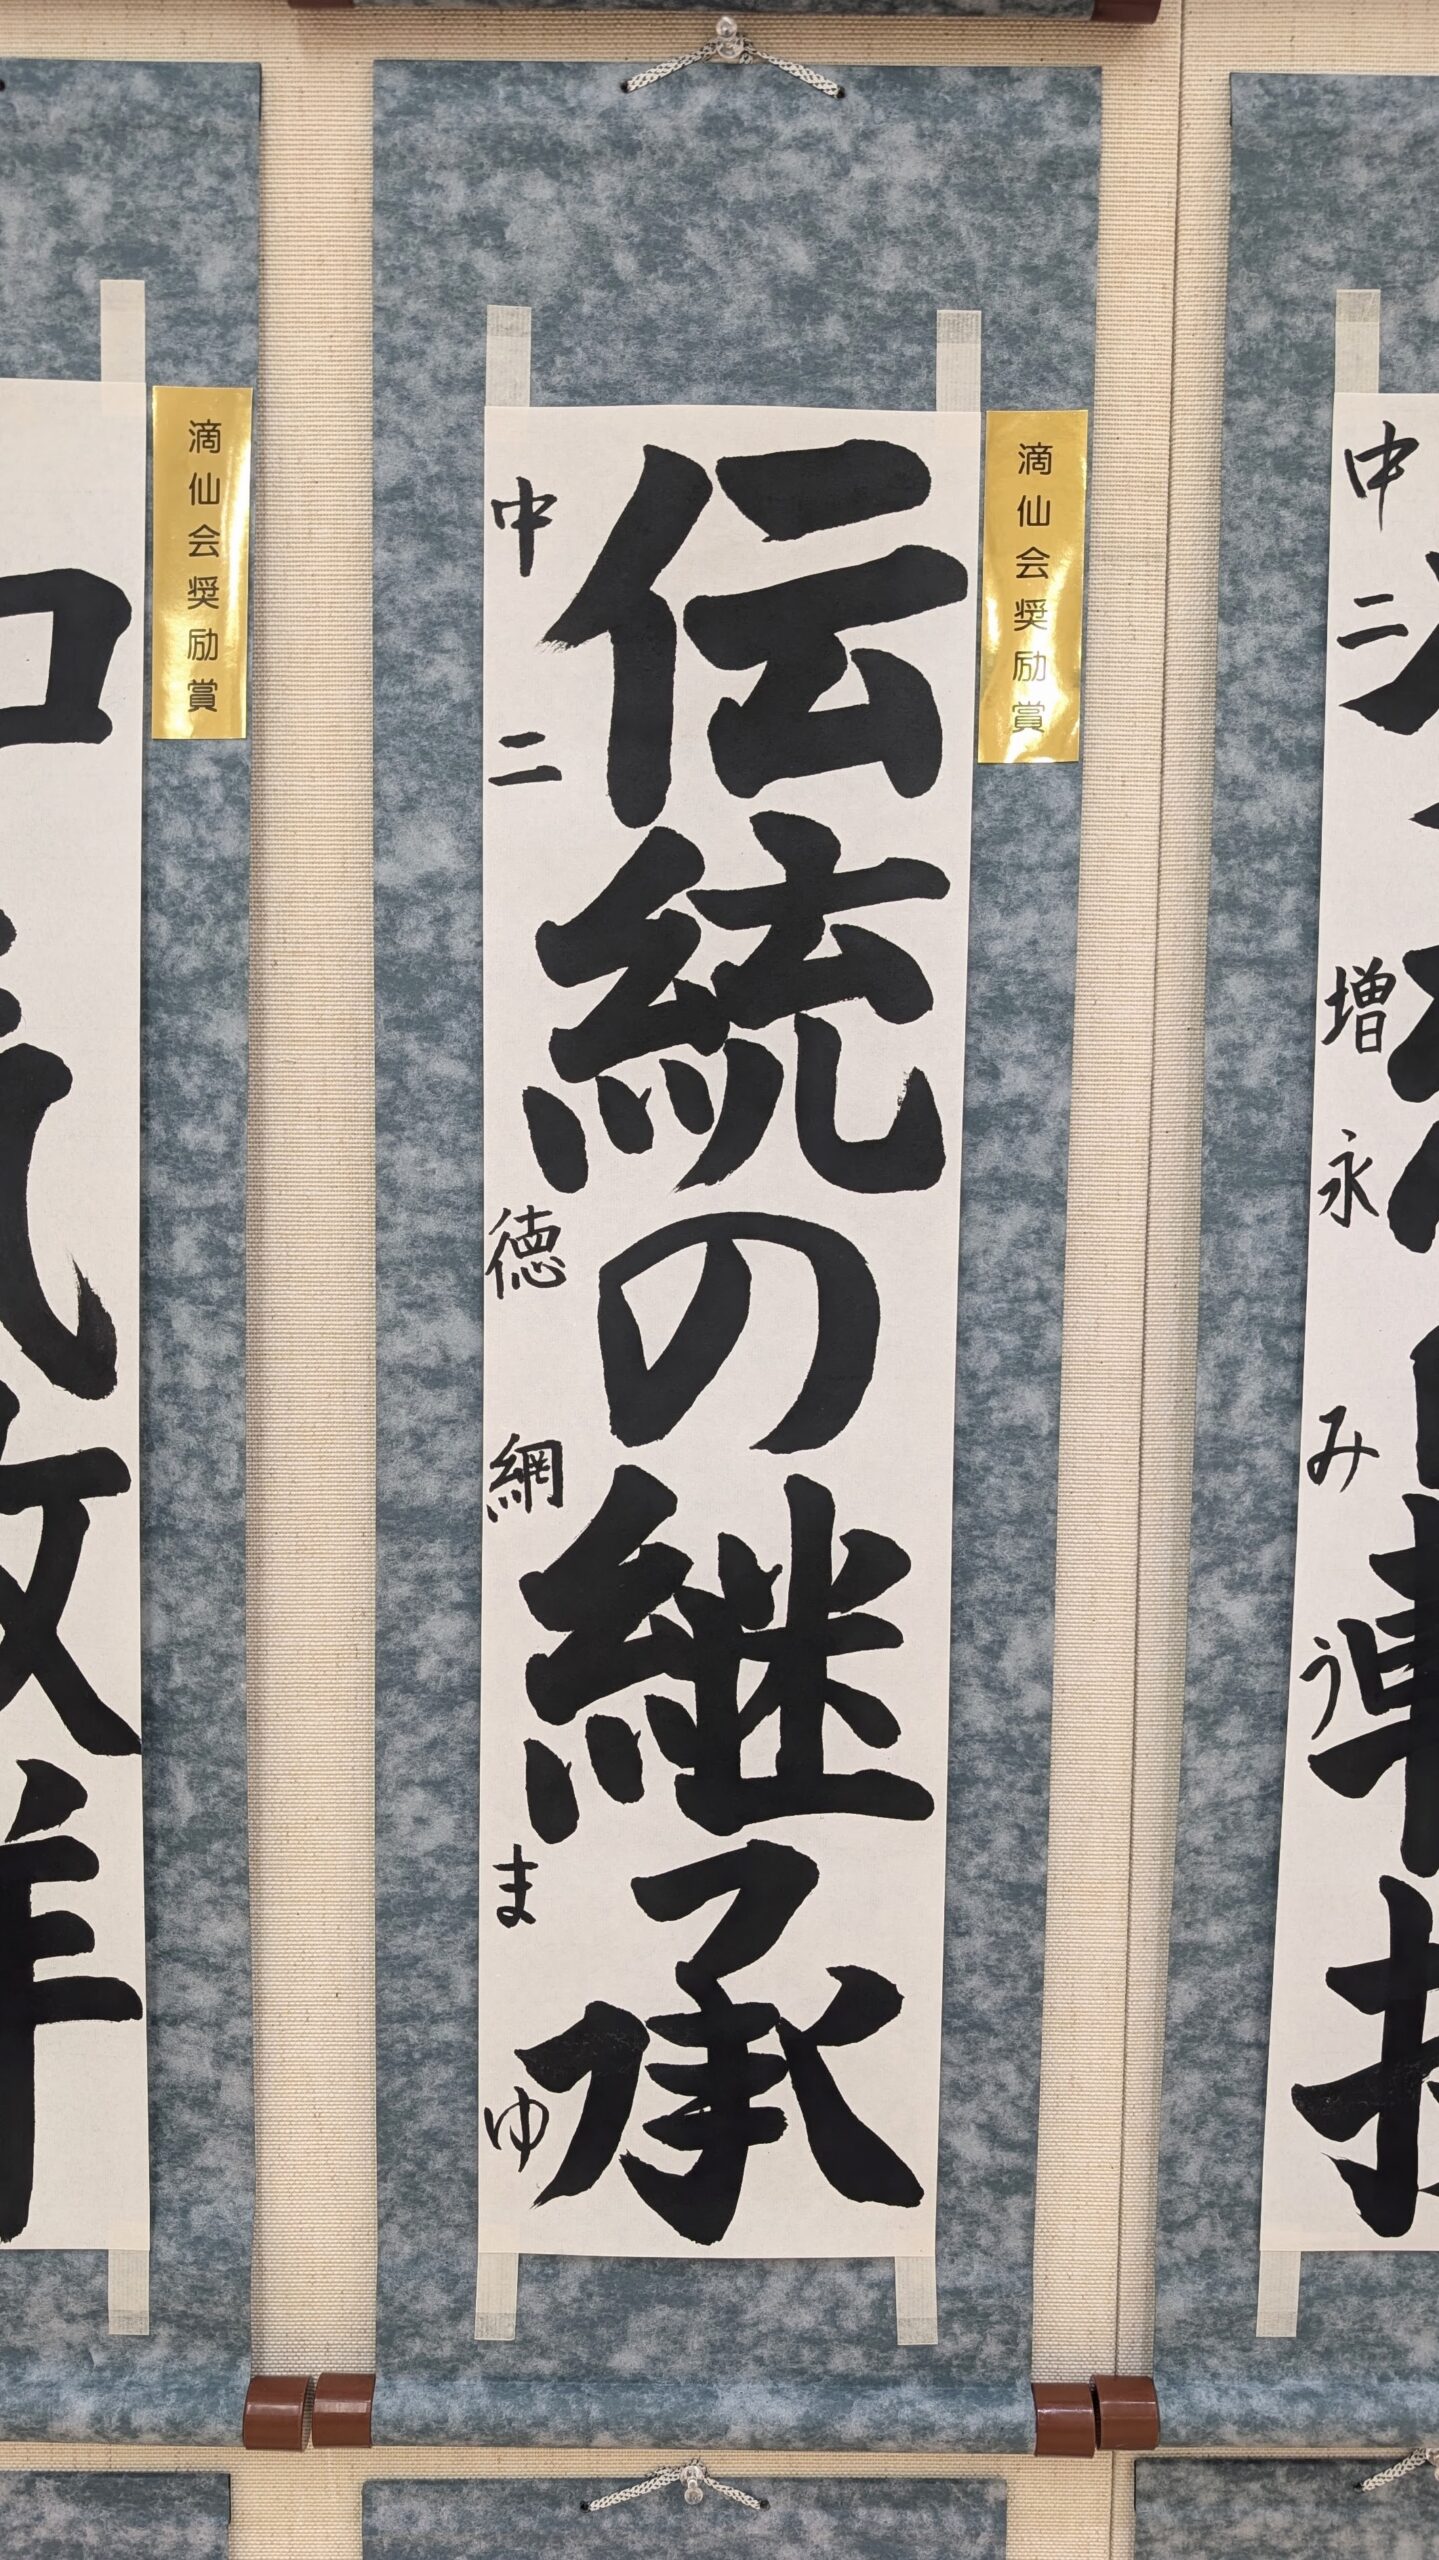 滴仙会奨励賞
伝統の継承
中二 徳網まゆ
滴仙会奨励賞
中二 増永みう